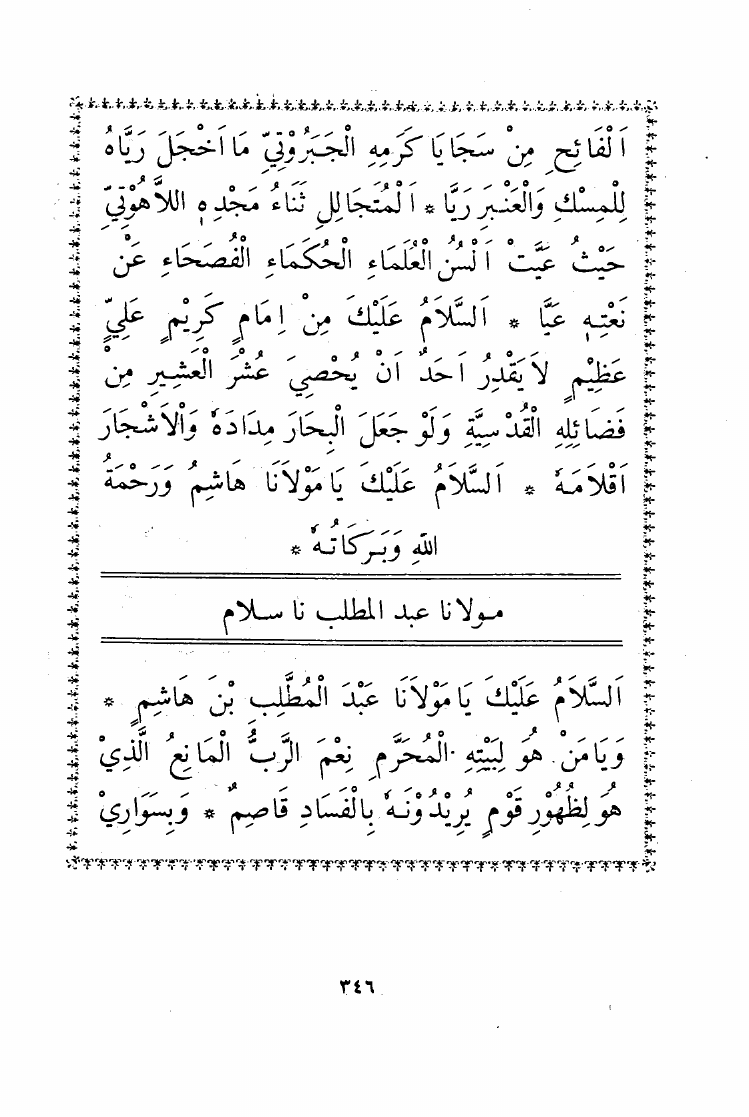 اَلْفَائِحِ مِنْ سَجَايَا كَرَمِهِ الْجَبَرُوْتِيِّ مَا اَخْجَلَ رَيَّاهُ
لِلْمِسْكِ وَالْعَنْبَرِ رَيَّا * اَلْمُتَجَالِلِ ثَنَاءُ مَجْدِهِ اللاَّهُوْتِيِّ
حَيْثُ عَيَّتْ اَلْسُنُ الْعُلَمَاءِ الْحُكَمَاءِ الْفُصَحَاءِ عَنْ
نَعْتِهِ عَيَّا * اَلسَّلاَمُ عَلَيْكَ مِنْ اِمَامٍ كَرِيْمٍ عَلِيٍّ
عَظِيْمٍ لاَ يَقْدِرُ اَحَدٌ اَنْ يُحْصِيَ عُشْرَ الْعَشِيْرِ مِنْ
فَضَائِلِهِ الْقُدْسِيَّةِ وَلَوْ جَعَلَ الْبِحَارَ مِدَادَهُ وَالْاَشْجَارَ
اَقْلاَمَهُ * اَلسَّلاَمُ عَلَيْكَ يَا مَوْلاَنَا هَاشِمُ وَرَحْمَةُ
اللهِ وَبَرَكَاتُهُ *
مولانا عبد المطلب نا سلام
اَلسَّلاَمُ عَلَيْكَ يَا مَوْلاَنَا عَبْدَ الْمُطَّلِبِ بْنَ هَاشِمٍ *
وَيَا مَنْ هُوَ لِبَيْتِهِ الْمُحَرَّمِ نِعْمَ الرَّبُّ الْمَانِعُ الَّذِيْ
هُوَ لِظُهُوْرِ قَوْمٍ يُرِيْدُوْنَهُ بِالْفَسَادِ قَاصِمٌ * وَبِسَوَارِيْ
٣٤٦